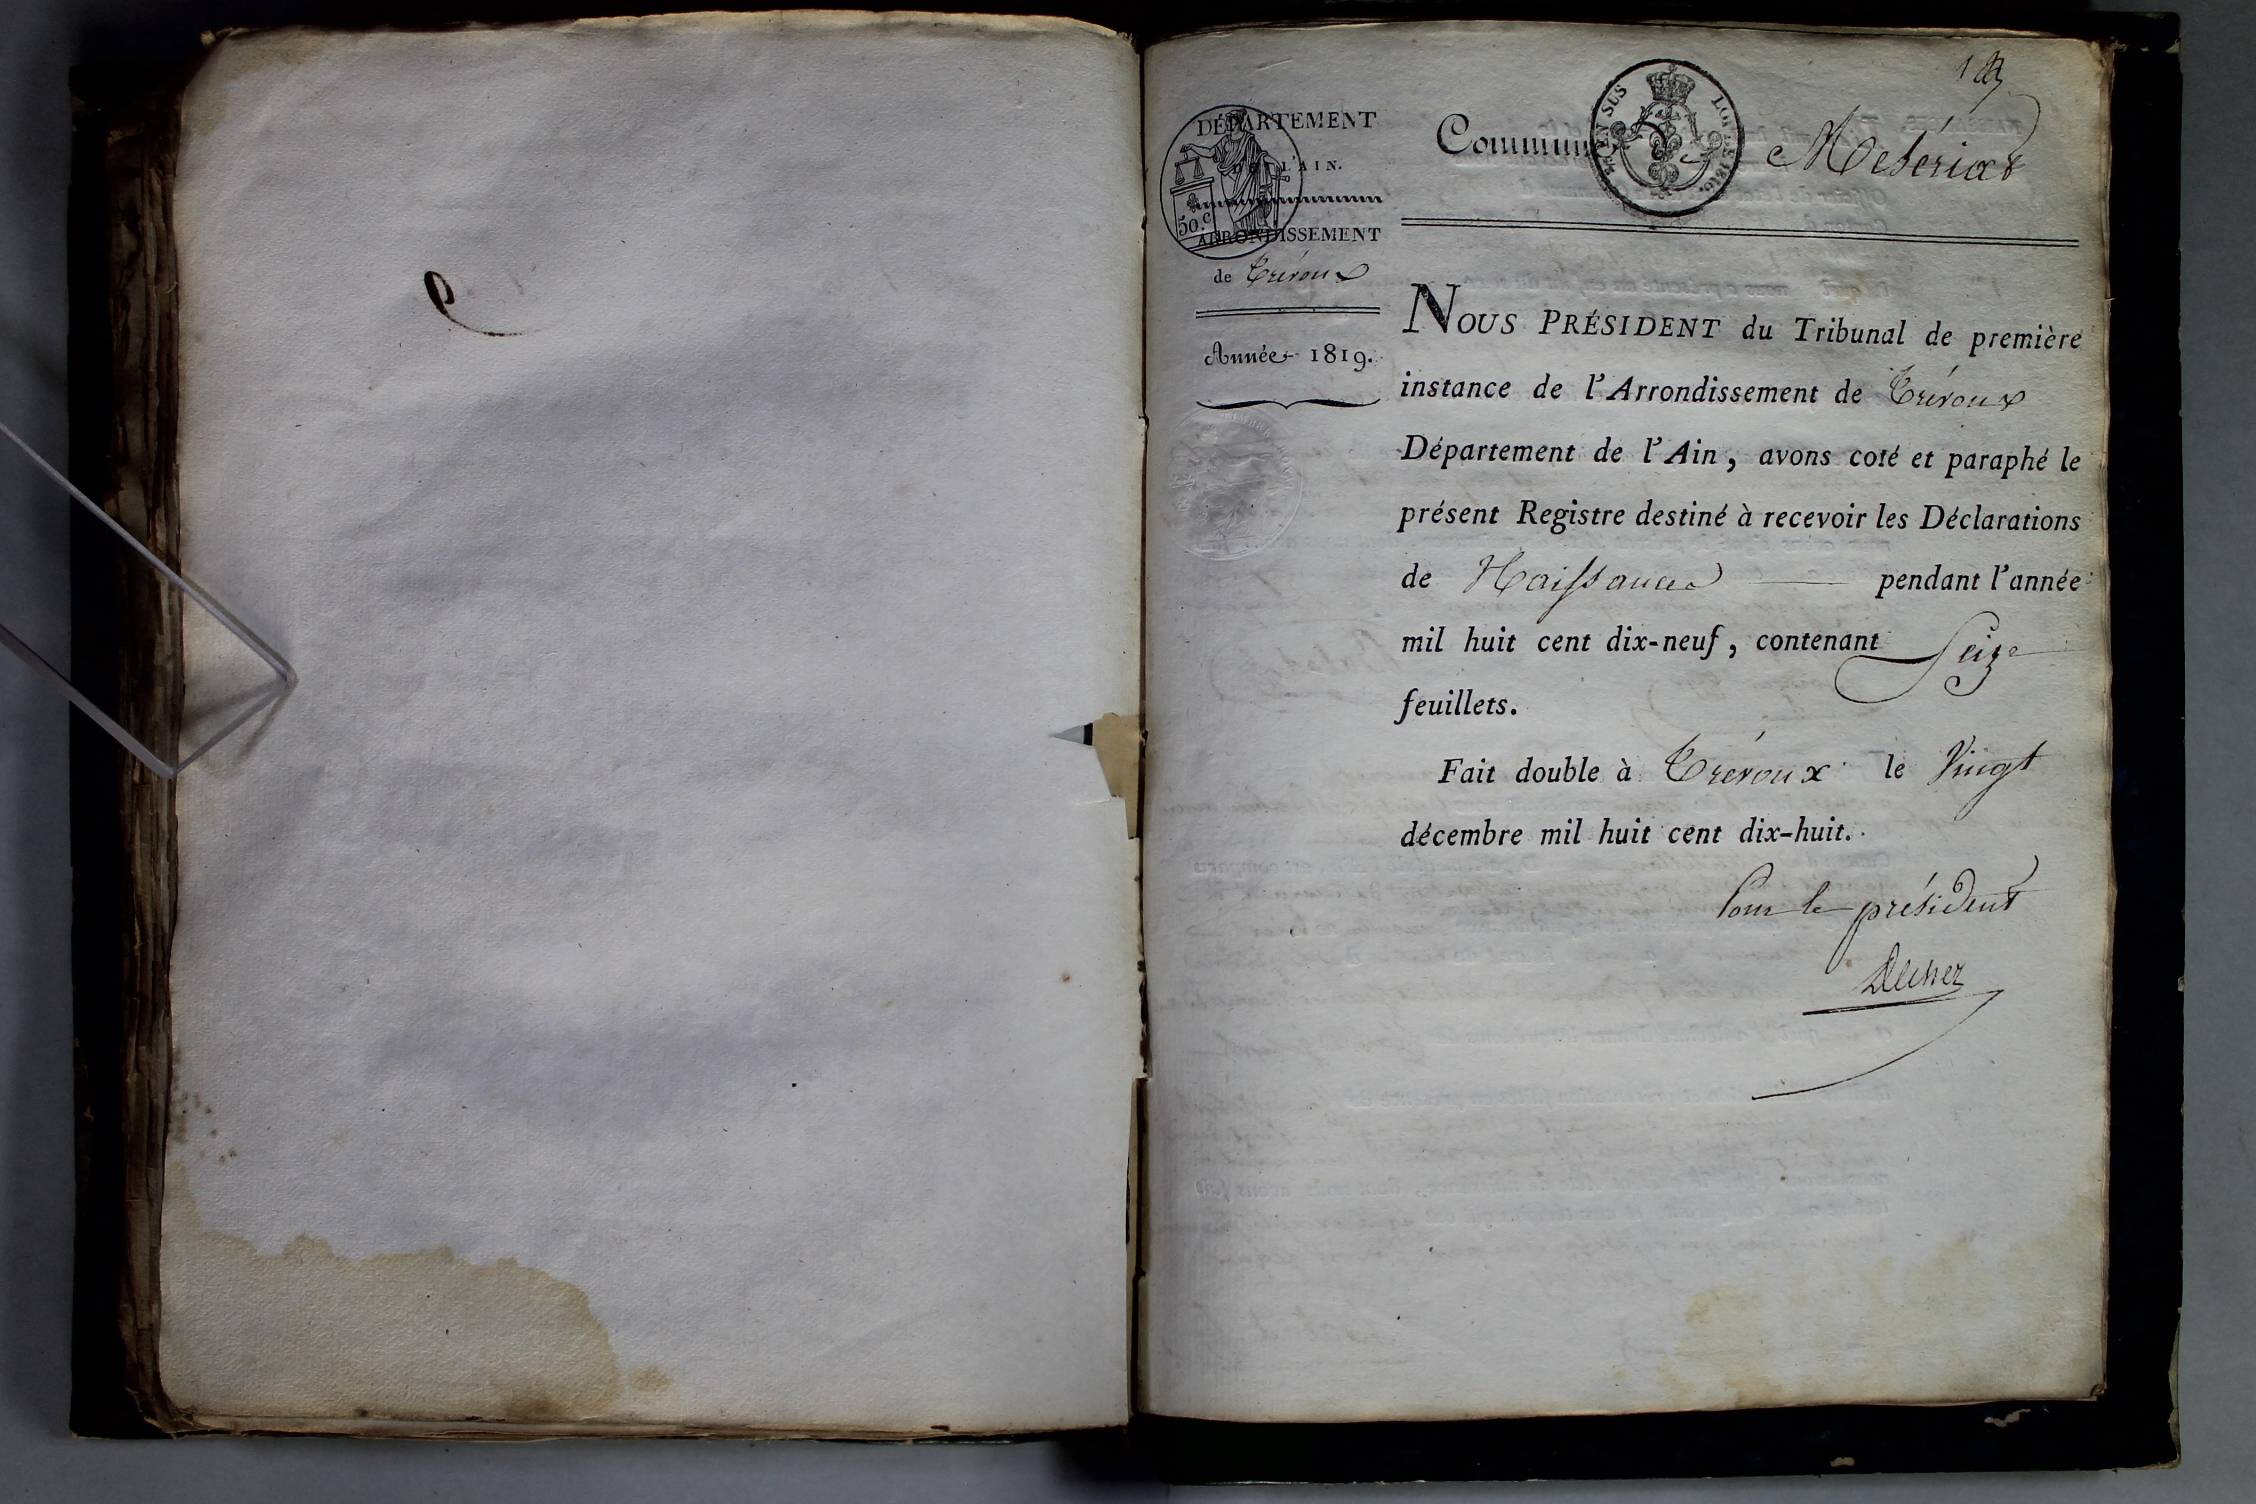 DÉPARTEMENT
DE L'AIN.
50.c
ARRONDISSEMENT
de Trévoux
Année 1819.
Commune de Meseriat
EN SUS
LOI DE 1816.
NOUS PRÉSIDENT du Tribunal de première
instance de l'Arrondissement de Trévoux
Département de l'Ain, avons coté et paraphé le
présent Registre destiné à recevoir les Déclarations
de Naissances pendant l'année
mil huit cent dix-neuf, contenant Seize
feuillets.
Fait double à Trévoux le Vingt
décembre mil huit cent dix-huit.
Pour le président